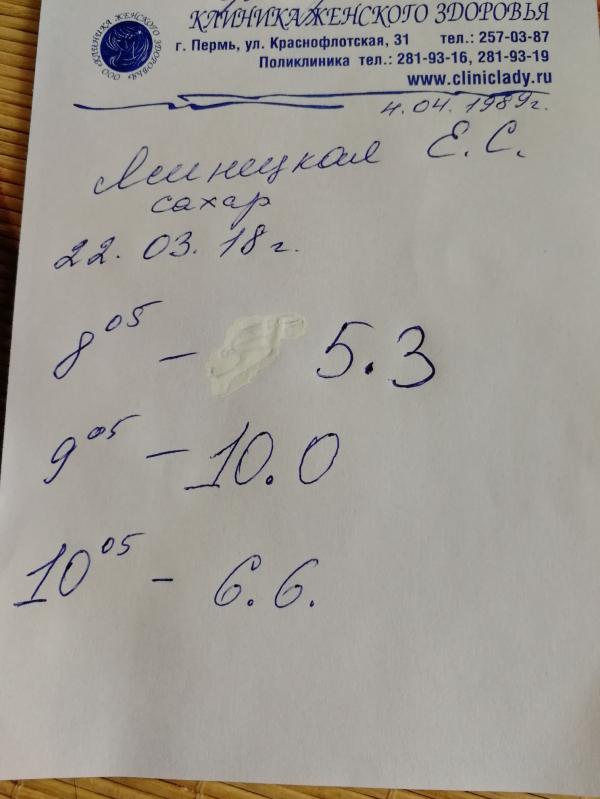 КЛИНИКА ЖЕНСКОГО ЗДОРОВЬЯ
г. Пермь, ул. Краснофлотская, 31 тел.: 257-03-87
Поликлиника тел.: 281-93-16, 281-93-19
www.cliniclady.ru
ООО «КЛИНИКА ЖЕНСКОГО ЗДОРОВЬЯ»
4.04.1989г.
Е.С.
сахар
22.03.18г.
8 05 – 5.3
9 05 – 10.0
10 05 – 6.6.